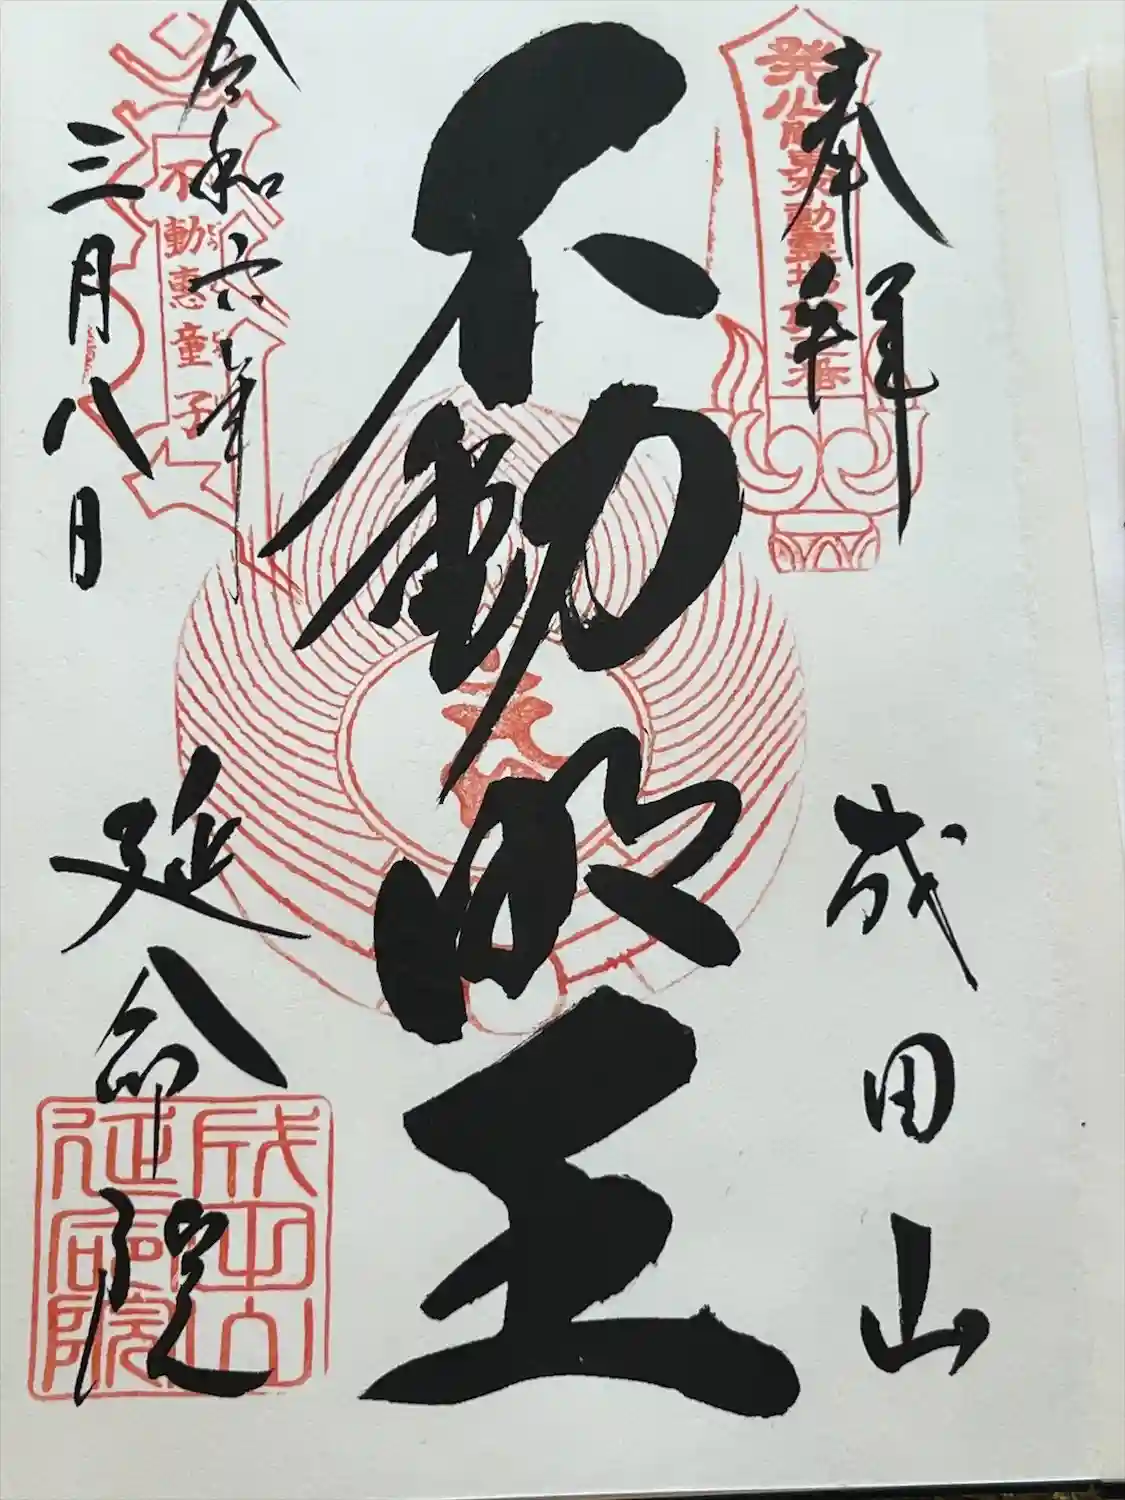 奉拝
成田山
不動明王
令和六年
三月八日
延命院
不動恵童子
成田山
延命院